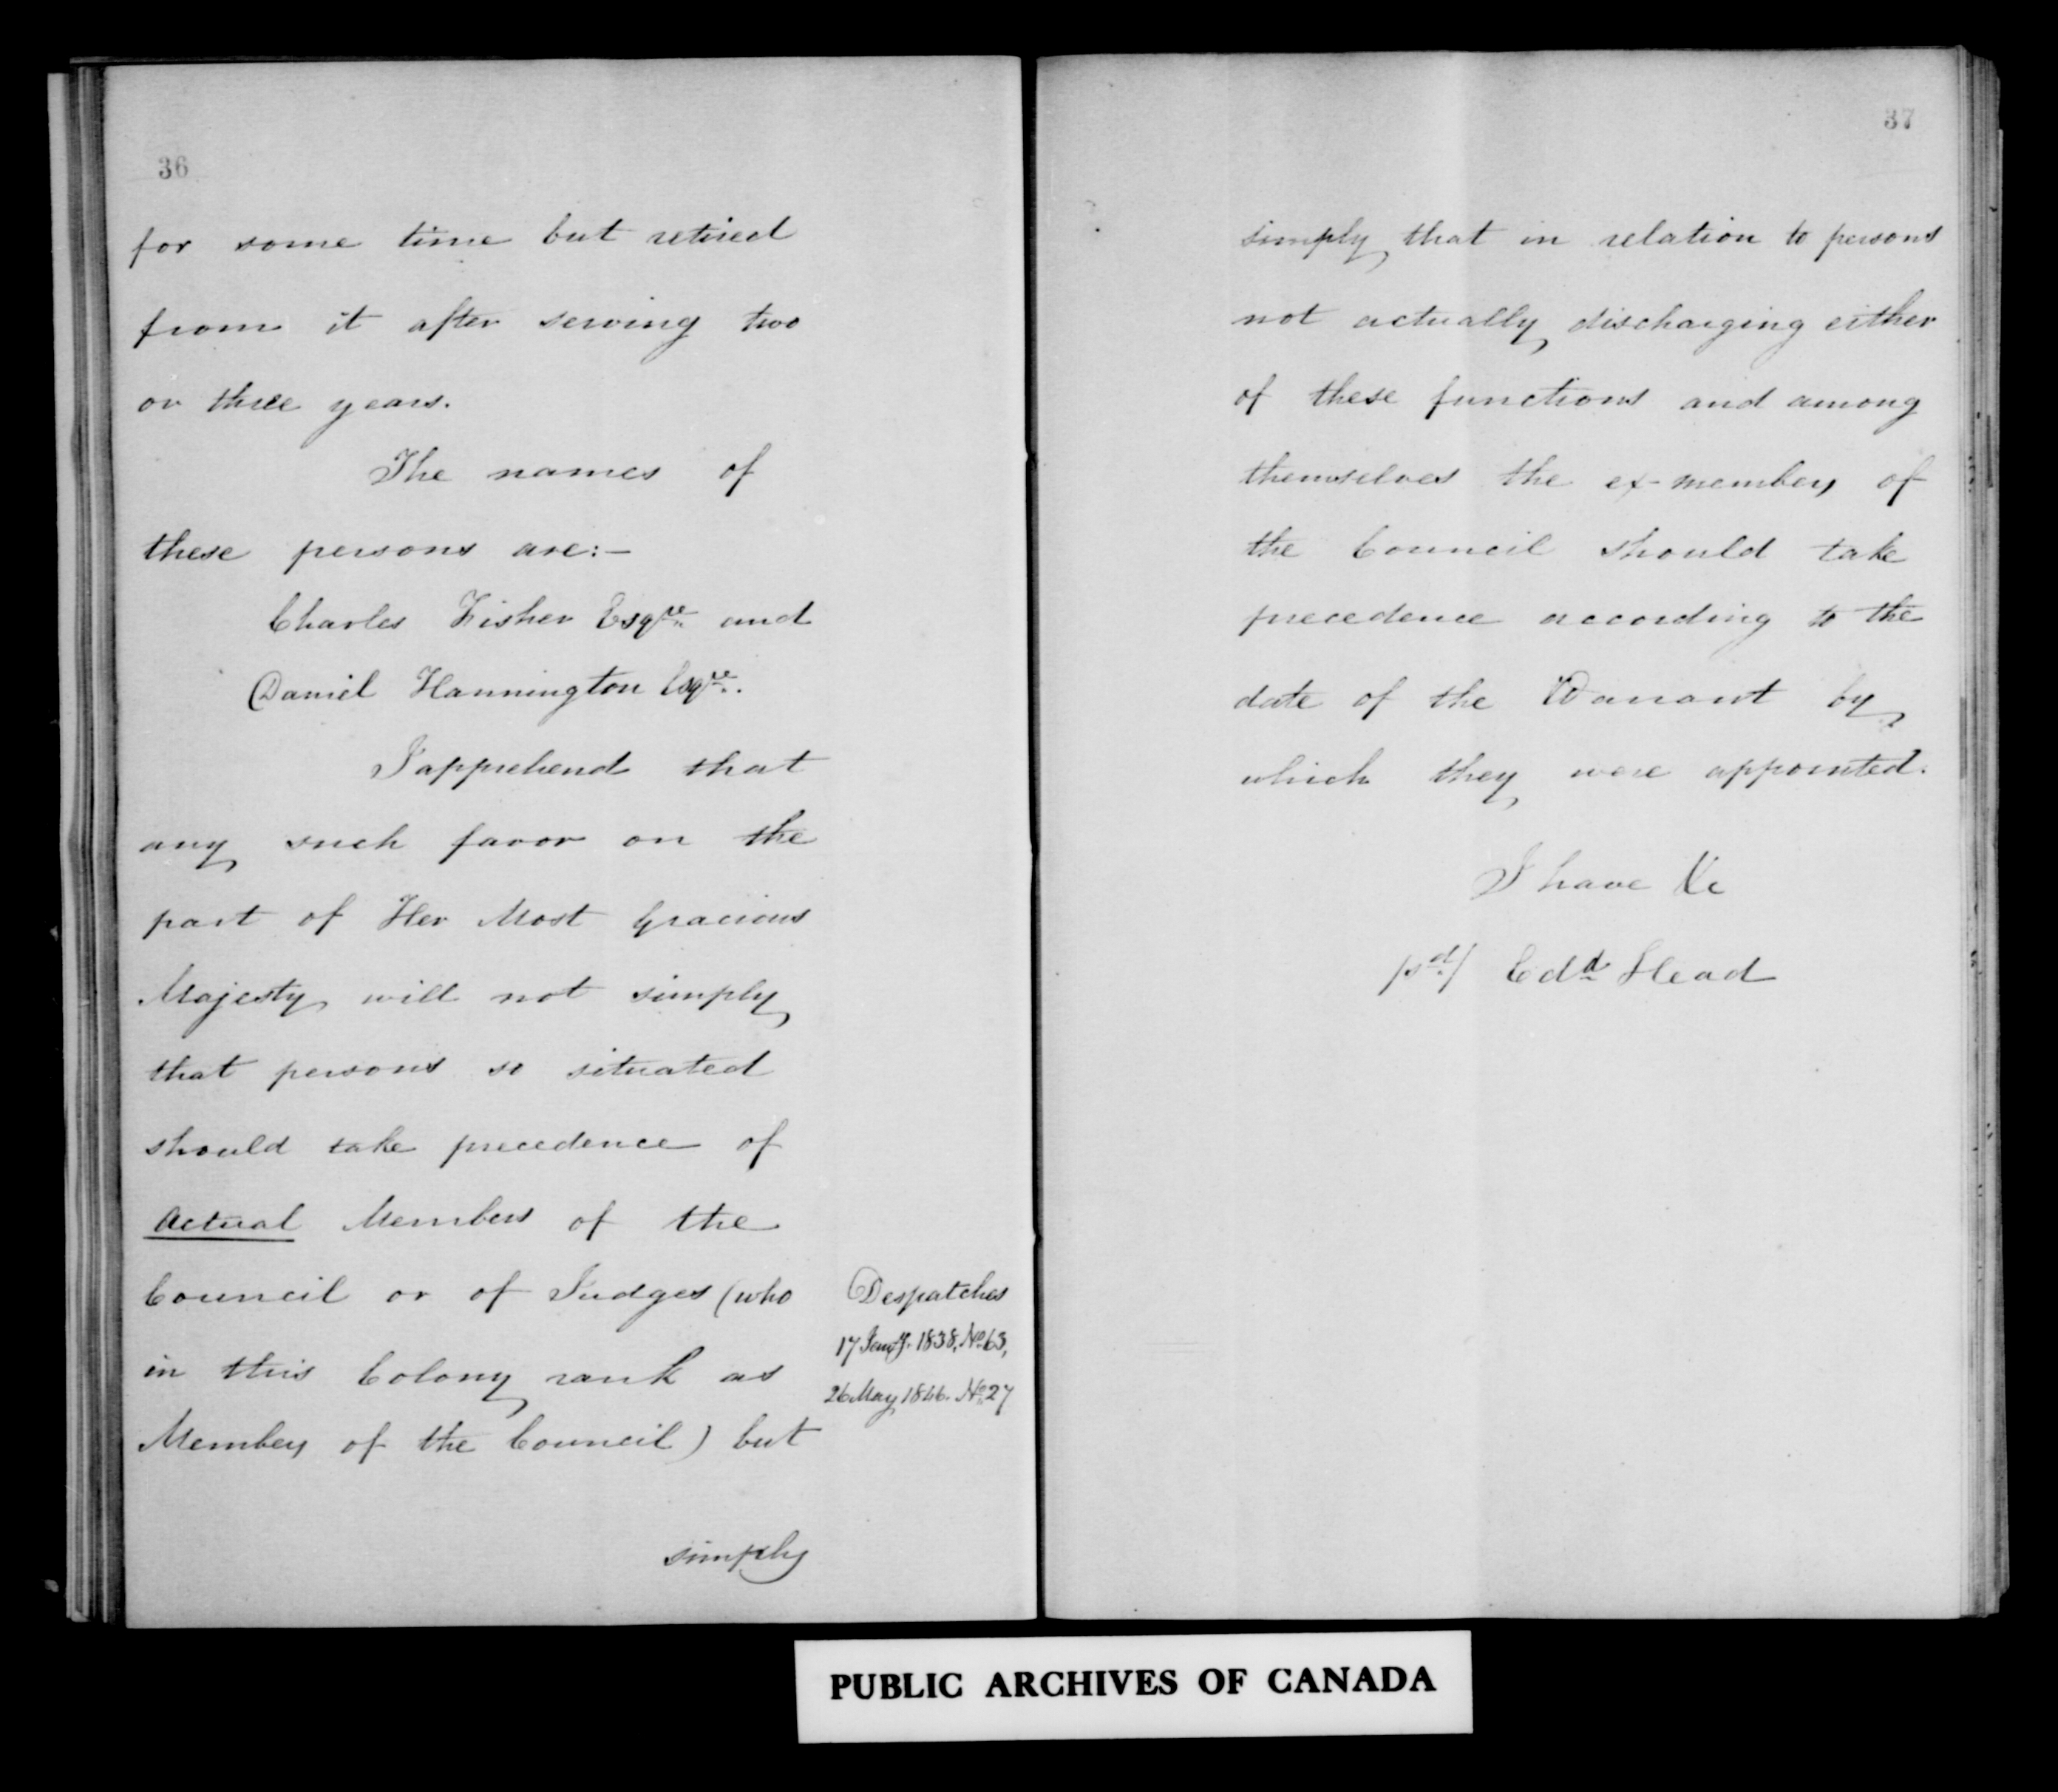 36
for some time but retired
from it after serving two
or three years.
The names of
these persons are:-
Charles Fisher Esqre and
Daniel Hannington Esqre.
I apprehend that
any such favor on the
part of Her Most Gracious
Majesty will not simply
that persons so situated
should take precedence of
actual Members of the
Council or of Judges (who
in this Colony rank as
Members of the Council) but
simply
Despatches
17 Jany. 1838, No 63,
26 May, 1846. No 27
37
simply that in relation to persons
not actually discharging either
of these functions and among
themselves the ex-members of
the Council should take
precedence according to the
date of the Warrant by
which they were appointed.
I have &c
/sd/ Edd Head
PUBLIC ARCHIVES OF CANADA